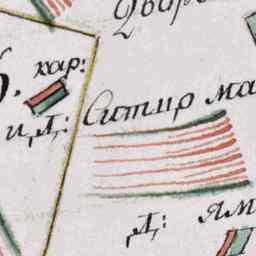 Двор
б. кар:
и, Д: Ситир ма
Д: ям